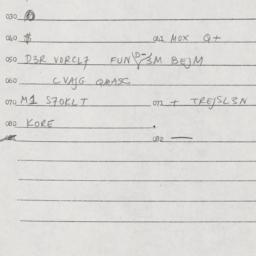 030
040 $ 041 MOX Q+
050 D3R VORCL7 FUN 3M BEJM
060 CVAJG
070 M1 S7OKLT 071 + TREJSL3N
080 KORE
082 —